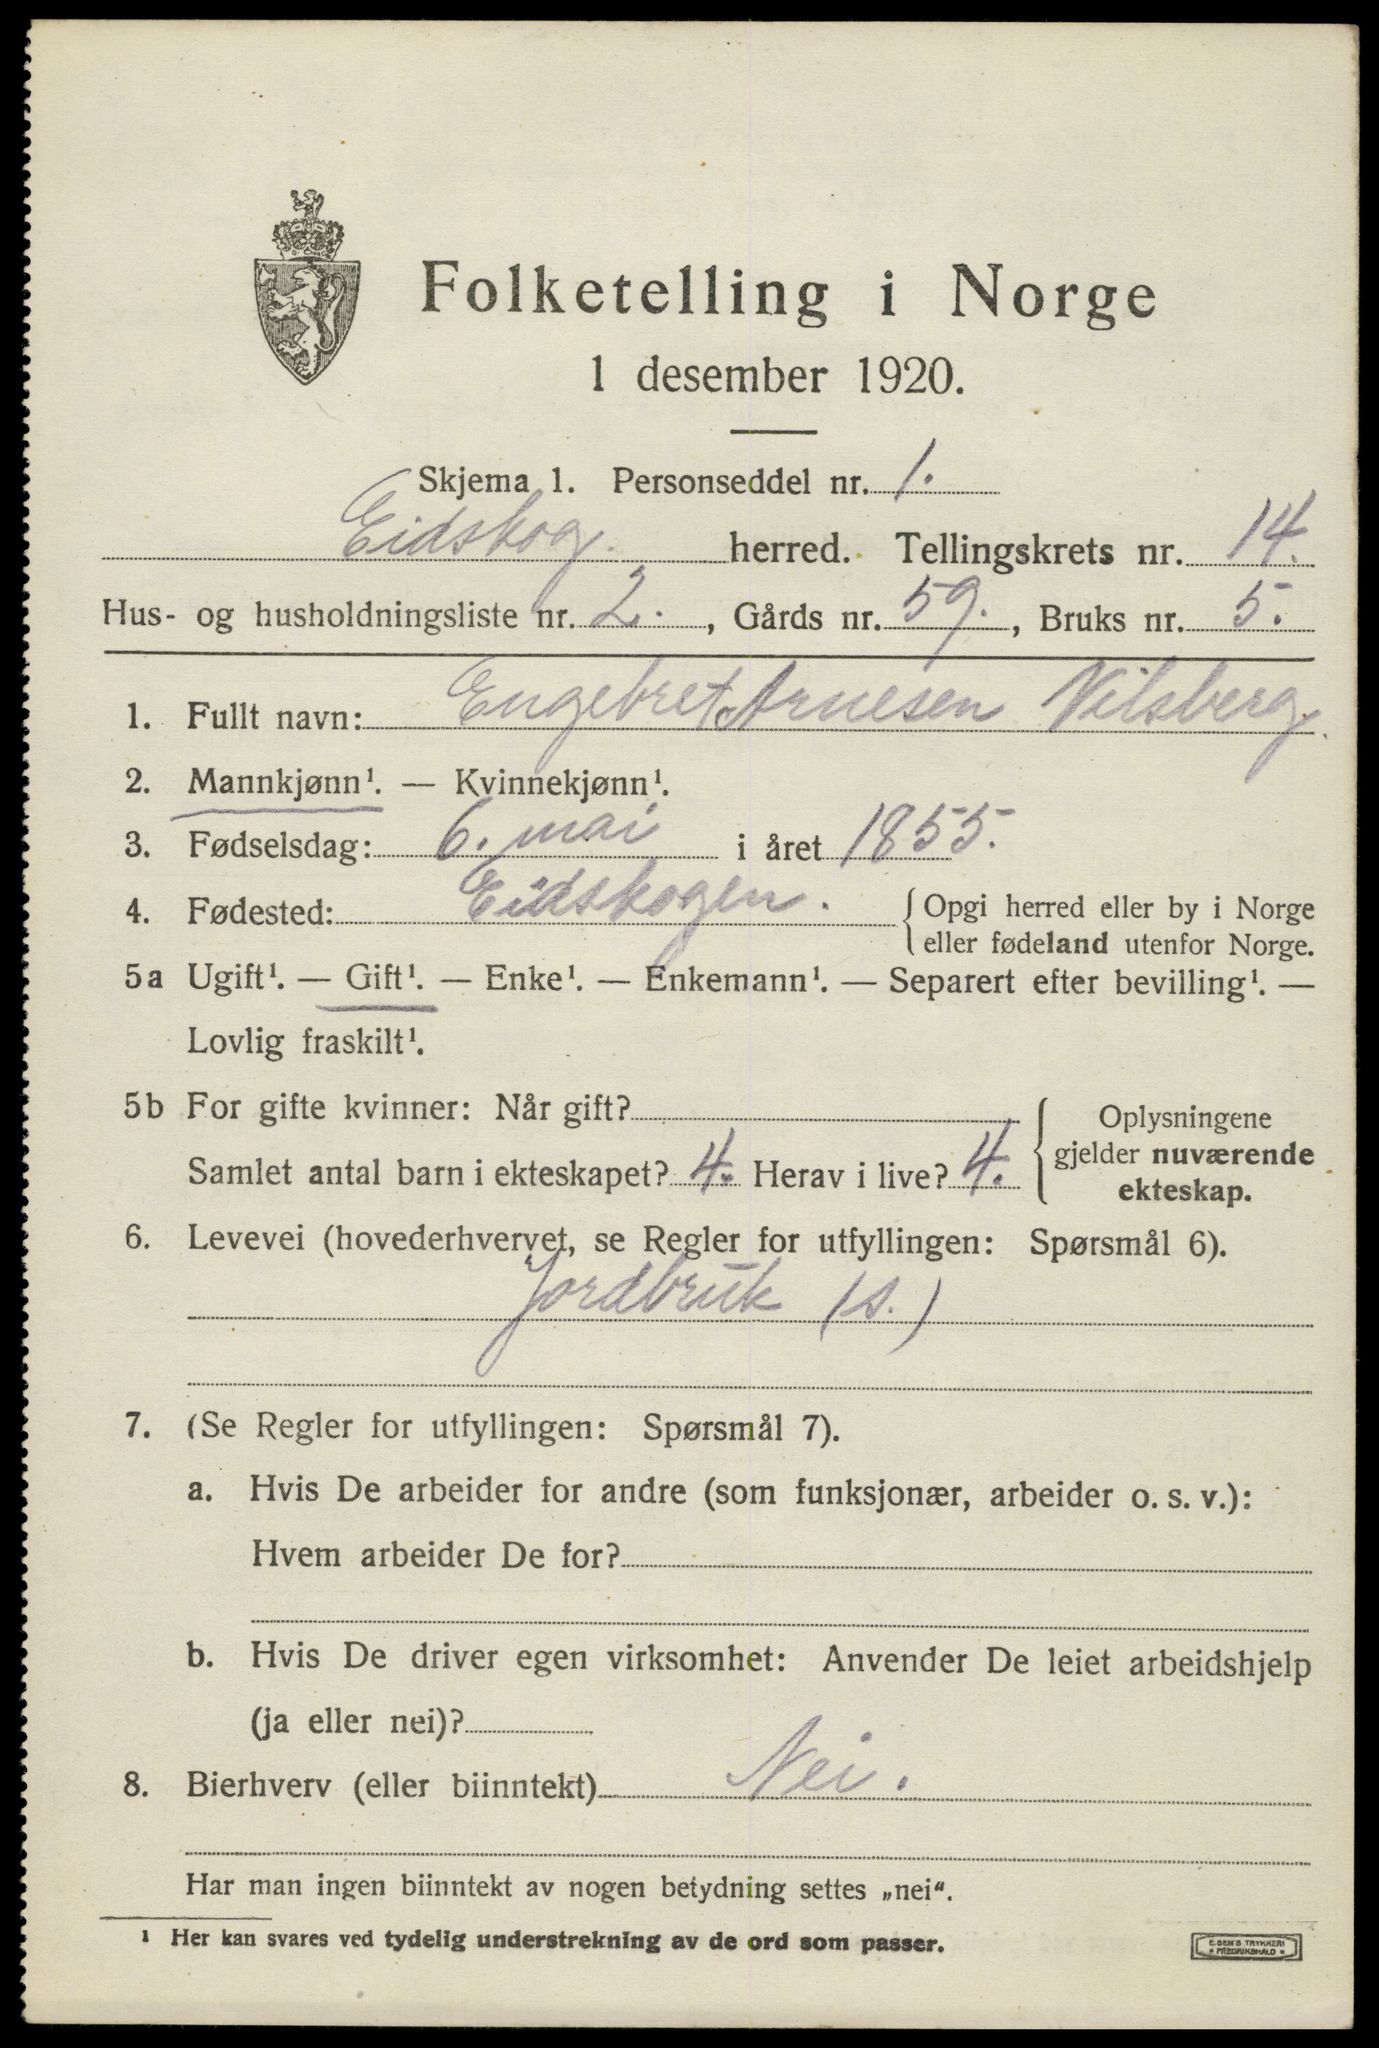 Folketelling i Norge
1 desember 1920.
Skjema 1. Personseddel nr. 1.
Eidskog. herred. Tellingskrets nr. 14.
Hus- og husholdningsliste nr. 2., Gårds nr. 59., Bruks nr. 5.
1. Fullt navn: Engebret Arnesen Vilsberg.
2. Mannkjønn¹. — Kvinnekjønn¹.
3. Fødselsdag: 6. mai i året 1855.
4. Fødested: Eidskogen. {Opgi herred eller by i Norge
eller fødeland utenfor Norge.
5a Ugift¹. — Gift¹. — Enke¹. — Enkemann¹. — Separert efter bevilling¹. —
Lovlig fraskilt¹.
5b For gifte kvinner: Når gift?
Samlet antal barn i ekteskapet? 4. Herav i live? 4.
Oplysningene
gjelder nuværende
ekteskap.
6. Levevei (hovederhvervet, se Regler for utfyllingen: Spørsmål 6).
Jordbruk (s.)
7. (Se Regler for utfyllingen: Spørsmål 7).
a. Hvis De arbeider for andre (som funksjonær, arbeider o. s. v.):
Hvem arbeider De for?
b. Hvis De driver egen virksomhet: Anvender De leiet arbeidshjelp
(ja eller nei)?
8. Bierhverv (eller biinntekt) Nei.
Har man ingen biinntekt av nogen betydning settes „nei“.
¹ Her kan svares ved tydelig understrekning av de ord som passer.
E. SEM'S TRYKKERI
• FREDRIKSHALD •